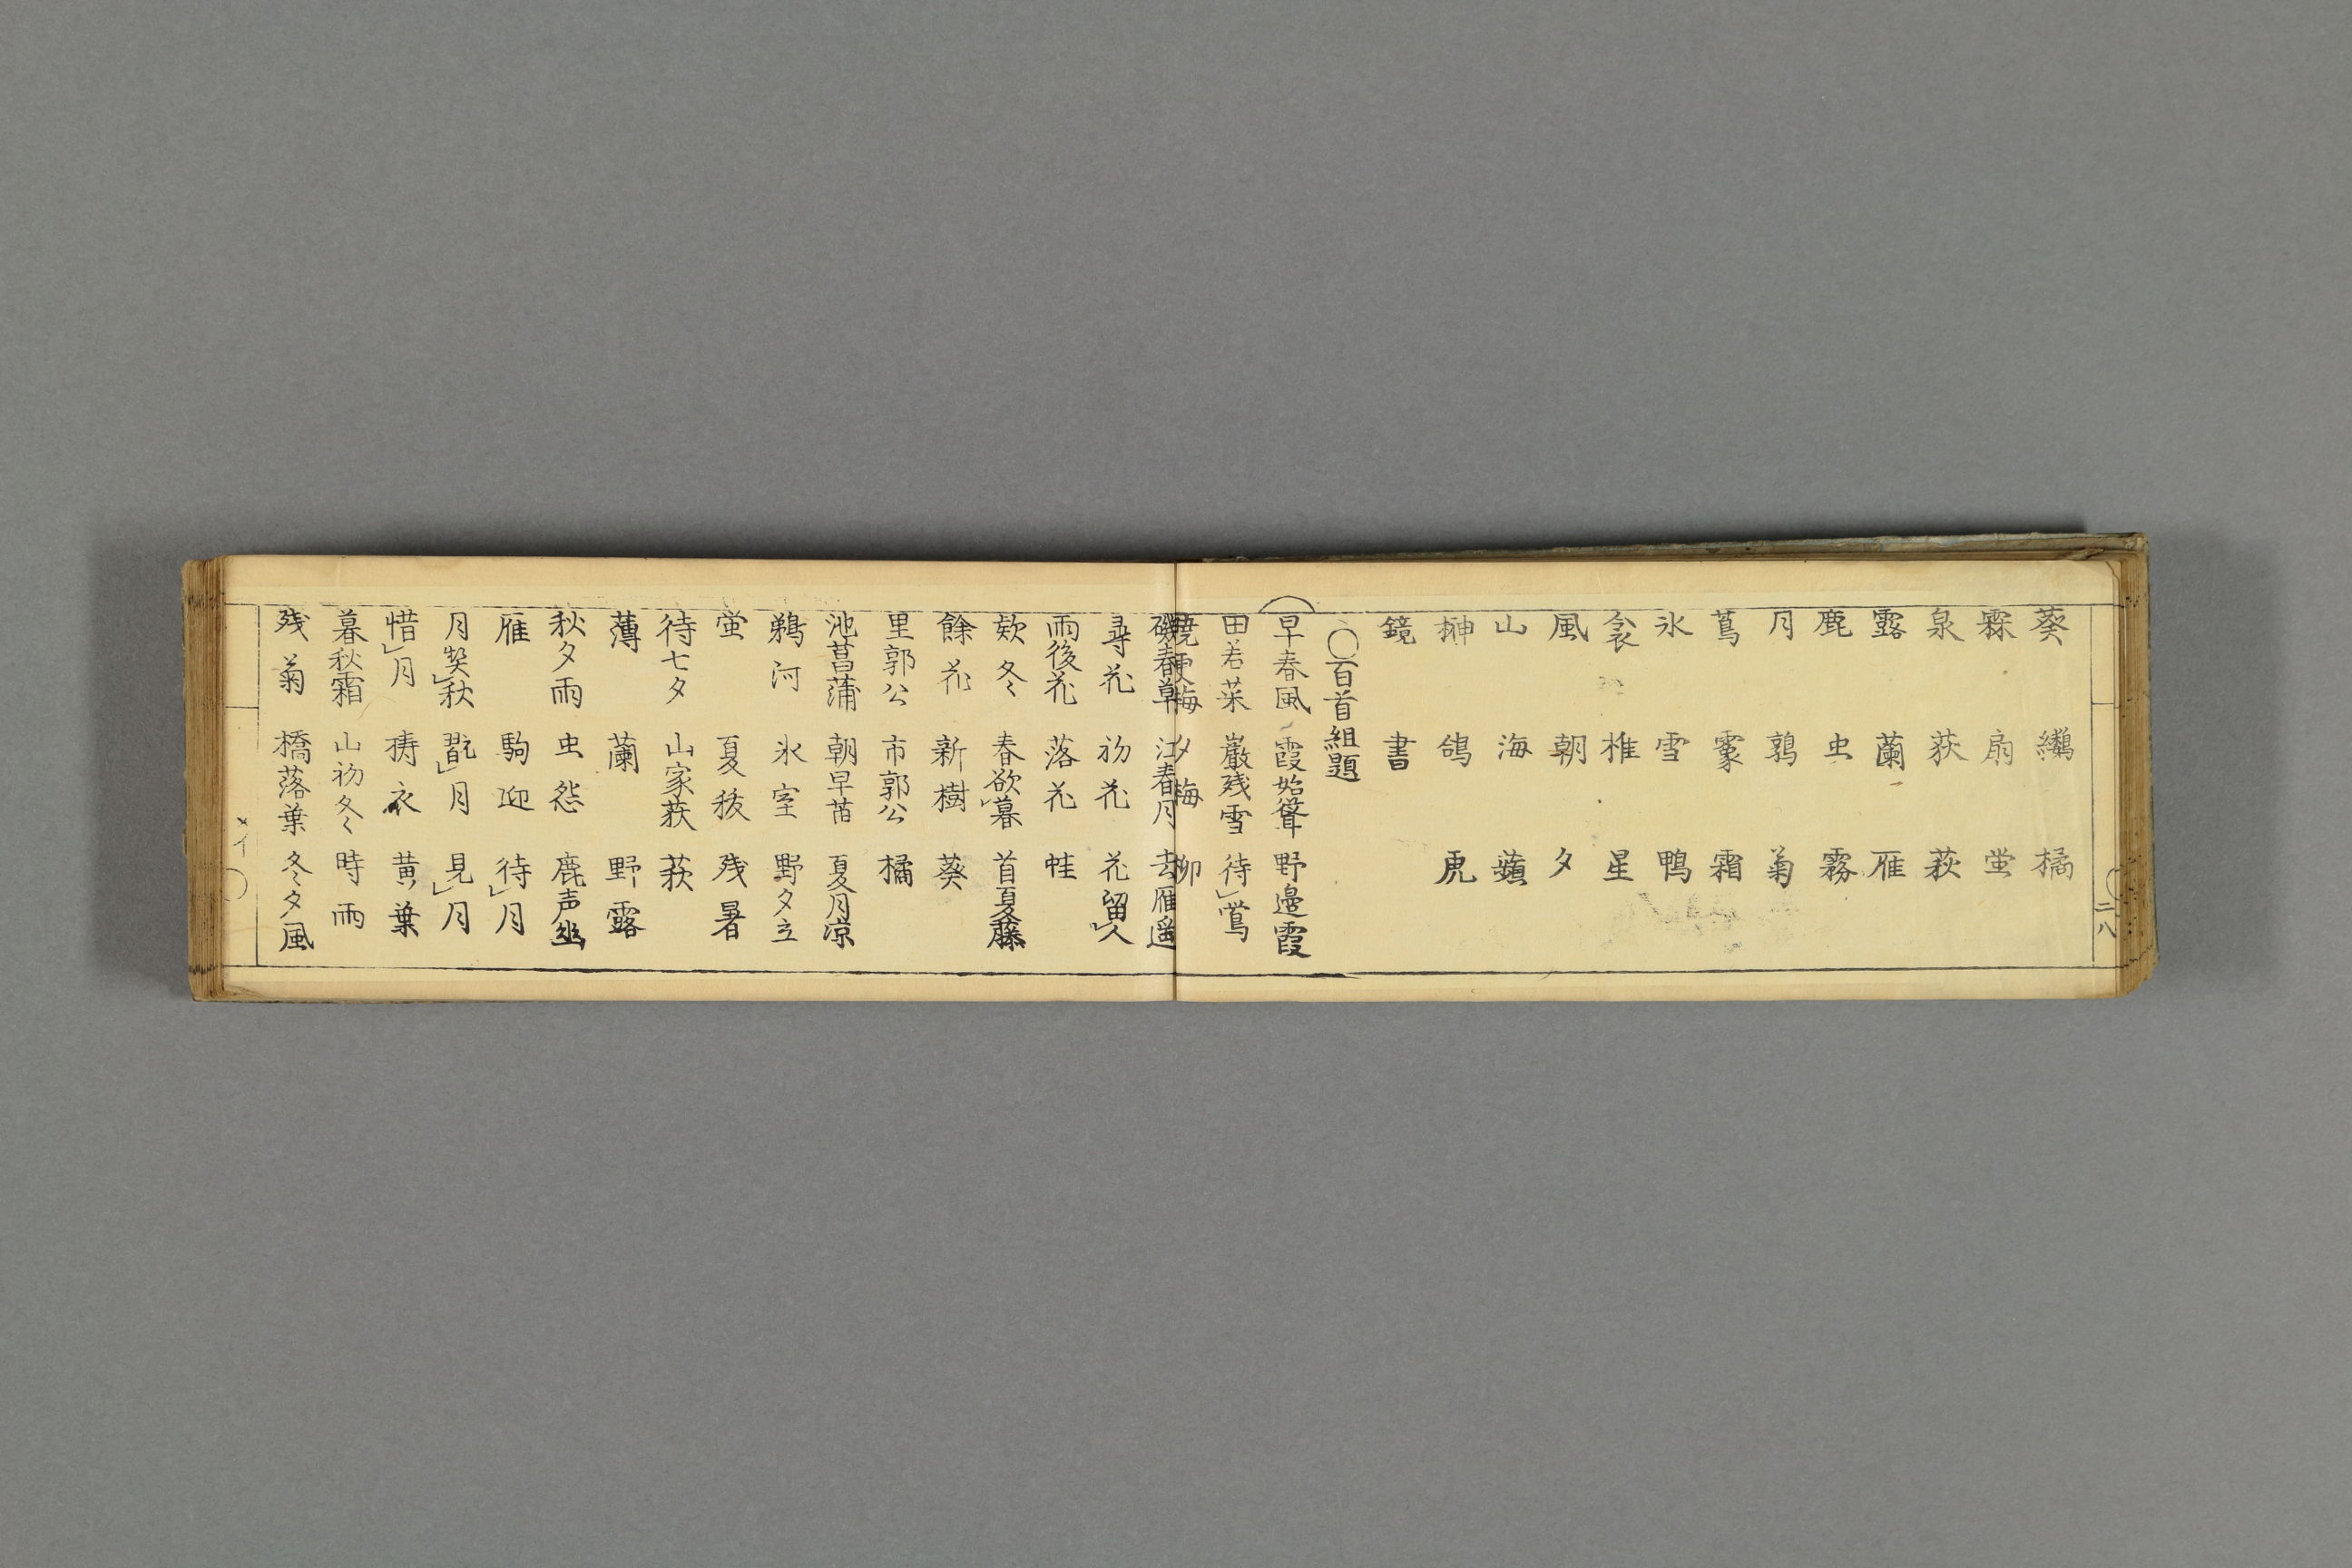 葵 橘
霖 扇 蛍
泉 荻 萩
露 蘭 雁
鹿 虫 霧
月 鶉 菊
蔦 霰 霜
氷 雪 鴨
衾 椎 星
風 朝 夕
山 海 蘋
榊 鴿 虎
鏡 書
〇百首組題
早春風 霞始聳 野邉霞
田若菜 巌残雪 待レ鴬
暁梗梅 夕梅 柳
磯春草 江春月 去雁遥
尋花 初花 花留レ人
雨後花 落花 蛙
欵冬 春欲レ暮 首夏藤
餘花 新樹 葵
里郭公 市郭公 橘
池菖蒲 朝早苗 夏月涼
鵜河 氷室 野夕立
蛍 夏祓 残暑
待七夕 山家荻 萩
薄 蘭 野露
秋夕雨 虫怨 鹿声幽
雁 駒迎 待レ月
月契レ秋 翫レ月 見レ月
惜レ月 擣衣 黄葉
暮秋霜 山初冬 時雨
残菊 橋落葉 冬夕風
二八